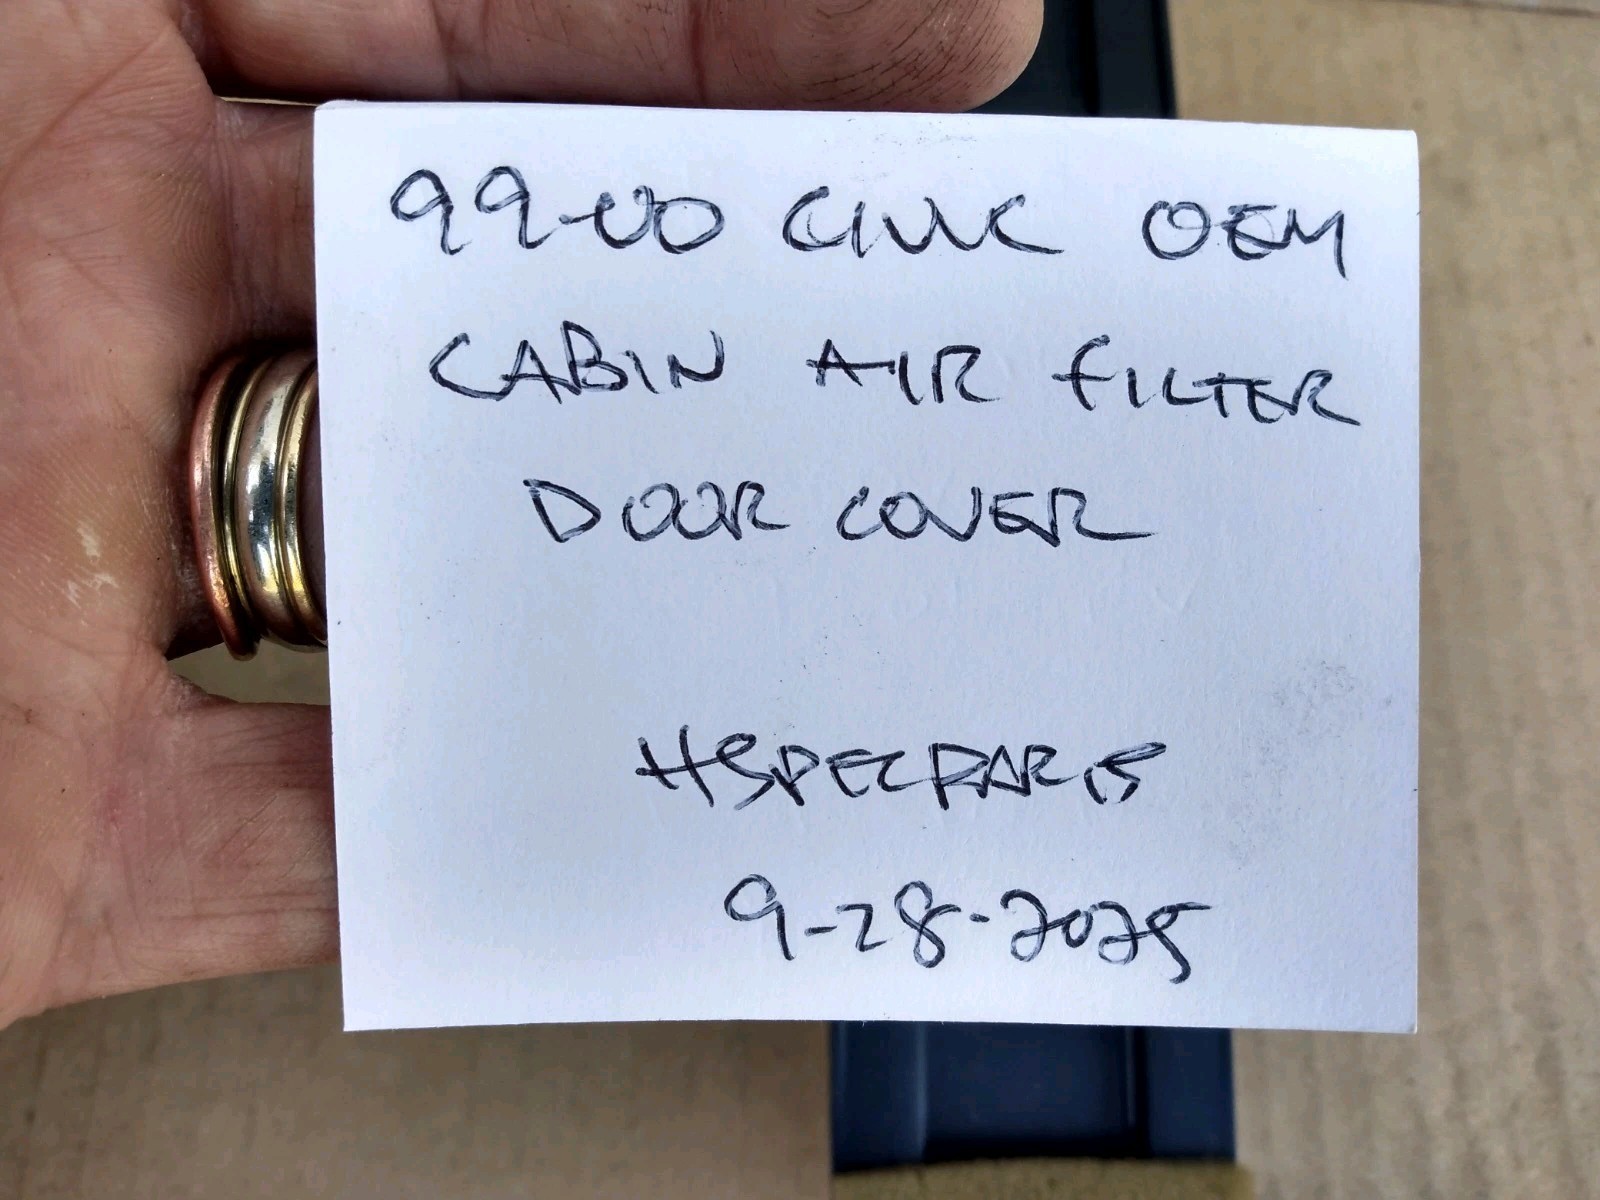 99-00 CIVIC OEM
CABIN AIR FILTER
DOOR COVER
HSPECPARTS
9-28-2025